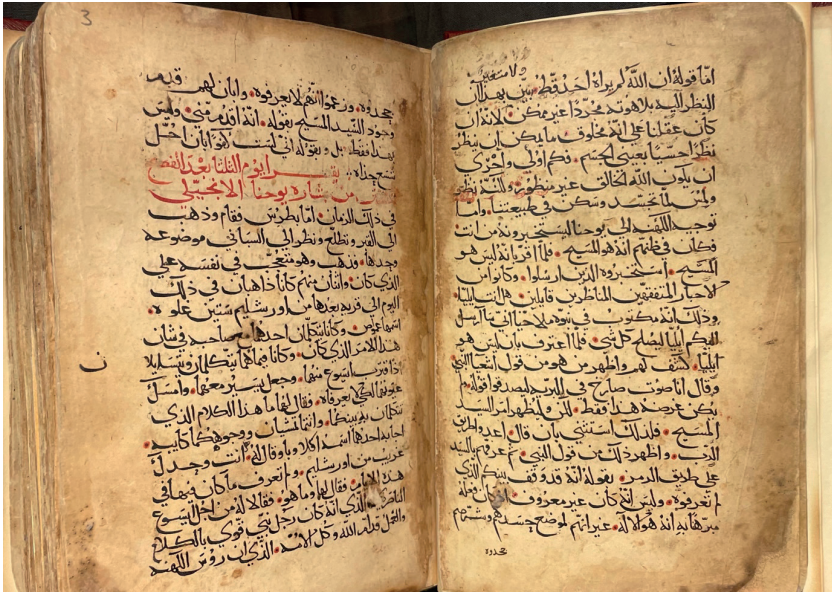 ولا متغير
امّا قوله ان اللّه لم يراه احد قط. يبين بهذا ان
النظر اليه بلاهوته مجردًا غير ممكن. لانه ان
كان عقلنا على انه مخلوق ما يمكن ان ينظر
نظرًا حسيًا بعيني الجسم. فكم اولى واحرى
ان يكون اللّه الخالق غير منظور. ولكنه نظر
ولمس لما تجسد وسكن في طبيعتنا. واما
توجيه اللهنه الى يوحنا ليستخبرونه من انت
فكان في ظنهم انه هو المسيح. فلما اقر بانه ليس هو
المسيح. استخبروه الذين ارسلوا. وكانوا من
الاحبار المتفقهين المناظرين قايلين هل انت ايليا.
وذلك انه مكتوب في نبوه ملاخيا اني انا ارسل
اليكم ايليا ليصلح كل شي. فلما اعترف بانه ليس هو
ايليا. كشف لهم واظهر من هو من قول اشعيا النبي
وقال انا صوت صارخ في البريه ليصدقوا قوله. ولم
يكن غرضه هذا فقط. لكن وليظهر امر السيد
المسيح. فلذلك استثنى بان قال اعدوا طريق
الرب. واظهر ذلك من قول النبي ثم عرفهم بالسيد
على طريق الرمز. بقوله انه قد وقف بينكم الذي
لم تعرفوه. وليس انه كان غير معروف كان قوله
مبرهنا به انه هو الاله. غير انهم لموضع حسدهم
جحدوه
3
جحدوه. وزعموا انهم لا يعرفوه. وابان لهم قدم
وجود السيد المسيح بقوله. انه اقدم مني. وليس
بهذا فقط بل وبقوله اني لست لاهلًا بان احل
شسع حذاه.. يقرا يوم الثلثا بعد الفصح
من بشاره يوحنا الانجيلي
في ذلك الزمان. امّا بطرس فقام وذهب
الى القبر وتطلع ونظر الى السباني موضوعه
وحدها. فذهب وهو متعجب في نفسه على
الذي كان. واثنان منهم كانا ذاهبان في ذلك
اليوم الى قريه بعدها من اورشليم ستين غلوه.
اسمها عمواس. وكانا يتكلمان احدهما لصاحبه في شان
هذا الامر الذي كان. وكانا فيما هما يتكلمان ويتسايلا
اذا قترب ايسوع منهما. وجعل يسير معهما. وامسك
عيونهما لكي لا يعرفاه. فقال لهما ما هذا الكلام الذي
تتكلمان به بينكما. وانتما تمشيان ووجوهكما كايبه.
اجابه احدهما اسمه اكلاوبا وقال له. انت وحدك
غريب من اورشليم. ولم تعرف ما كان فيها في
هذه الايام. فقال لهما وما هو. فقالا له من اجل يسوع
الناصري الذي انه كان رجل نبي قوي بالكلام
والفعل قدام اللّه وكل الامه. الذي ان روس اللهنه
ن